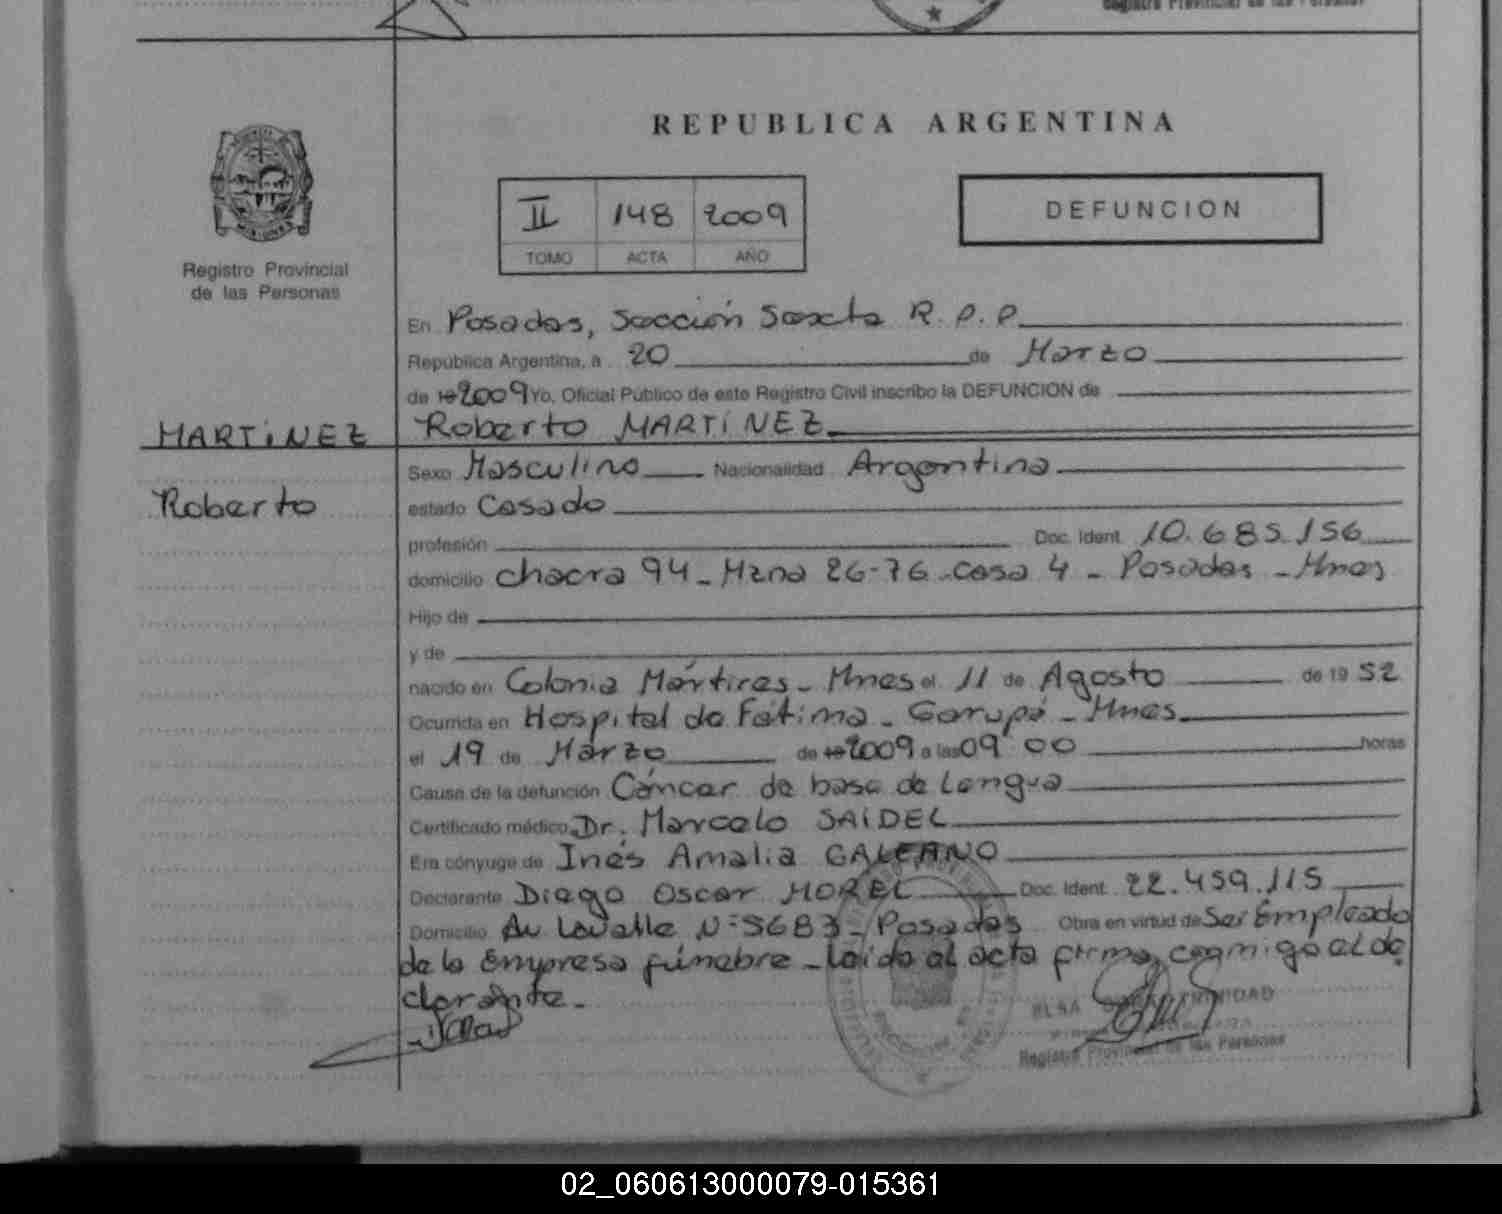 Registro Provincial de las Personas
REPUBLICA ARGENTINA
II 148 2009
TOMO ACTA AÑO
DEFUNCION
Registro Provincial
de las Personas
En Posadas, Sección Sexta R.P.P.
República Argentina, a 20 de Marzo
de 19 2009 Yo, Oficial Público de este Registro Civil inscribo la DEFUNCION de
MARTÍNEZ
Roberto MARTÍNEZ
Sexo Masculino Nacionalidad Argentina
Roberto
estado Casado
profesión Doc. Ident. 10.685.156
domicilio chacra 94 - Mzna 26-76 - casa 4 - Posadas - Mnes
Hijo de
y de
nacido en Colonia Mártires - Mnes el 11 de Agosto de 19 52
Ocurrida en Hospital de Fátima - Garupá - Mnes.
el 19 de Marzo de 19 2009 a las 09 00 horas
Causa de la defunción Cáncer de base de lengua
Certificado médico Dr. Marcelo SAIDEL
Era cónyuge de Inés Amalia GALEANO
Declarante Diego Oscar MOREL Doc. Ident. 22.459.115
Domicilio Av Lavalle N° 5683 - Posadas Obra en virtud de Ser Empleado
de la Empresa fúnebre - leída el acta firma conmigo el de
clarante.
ELSA TRINIDAD
Registro Provincial de las Personas
02_060613000079-015361